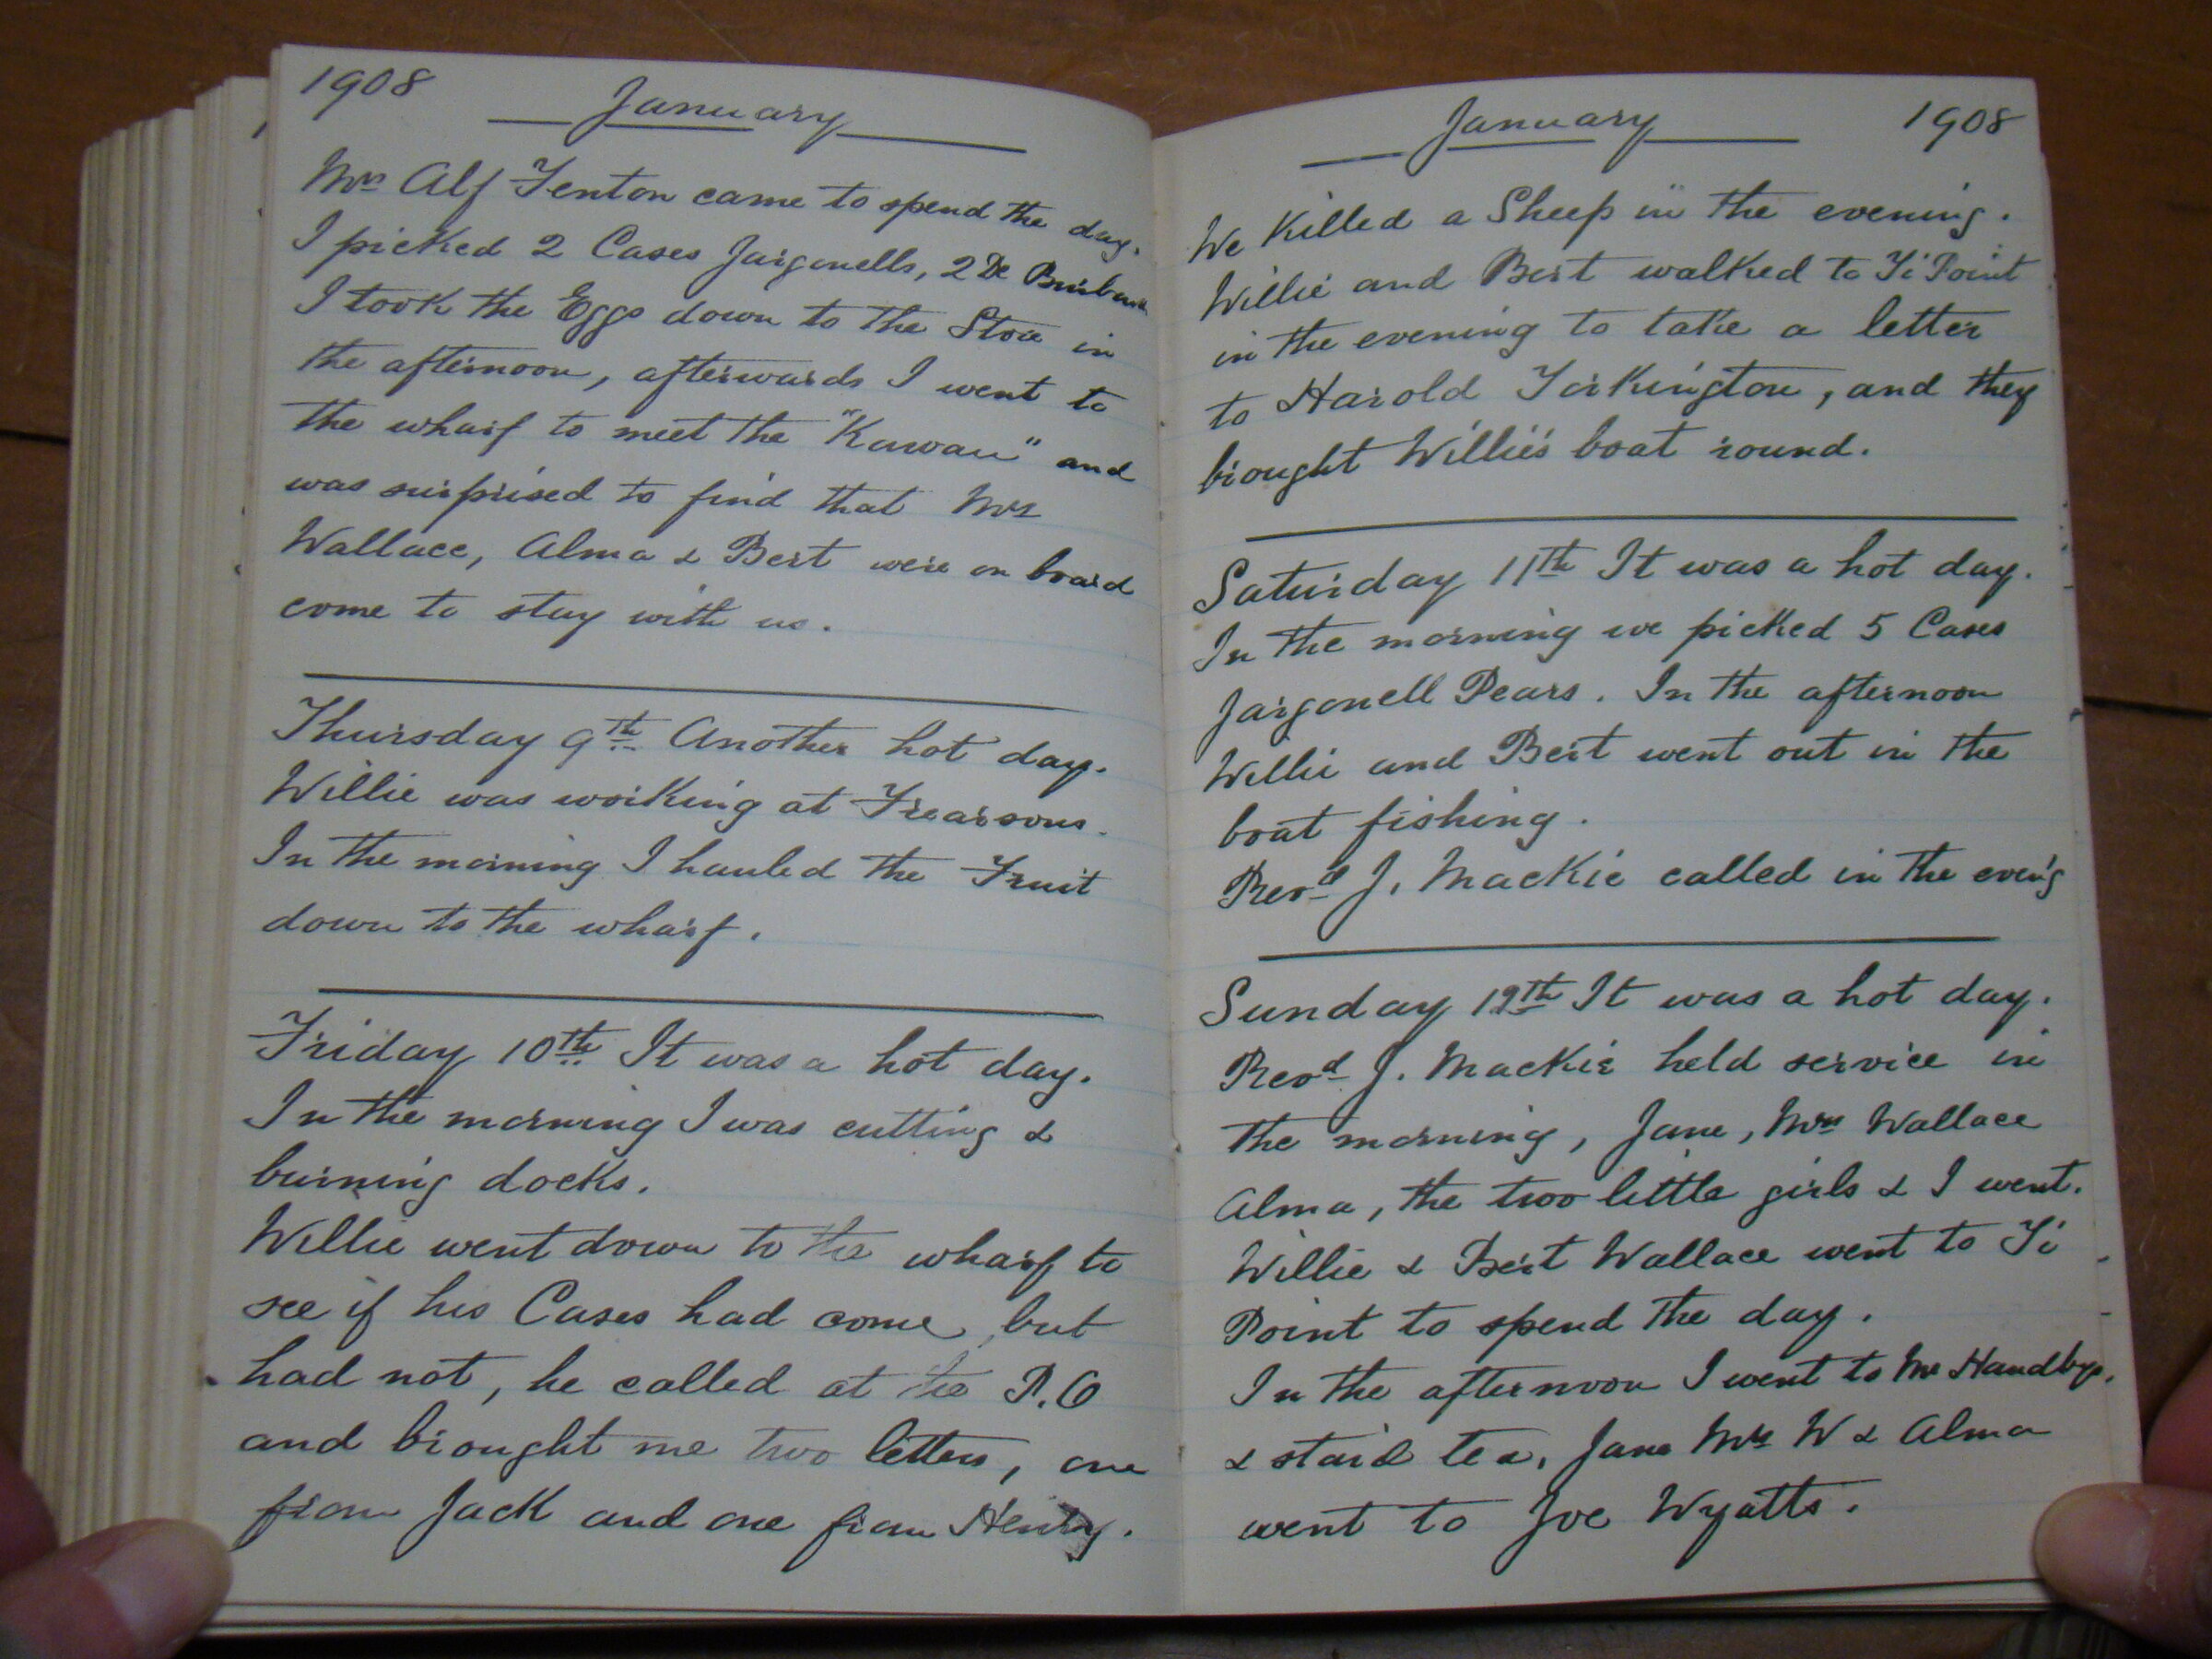 1908
January
Mrs Alf Tenton came to spend the day.
I picked 2 Cases Jargonells, 2 Do Burbank
I took the Eggs down to the Store in
the afternoon, afterwards I went to
the wharf to meet the "Kawau" and
was surprised to find that Mrs
Wallace, Alma & Bert were on board
come to stay with us.
Thursday 9th Another hot day.
Willie was working at Frearsons.
In the morning I hauled the Fruit
down to the wharf.
Friday 10th It was a hot day.
In the morning I was cutting &
burning docks.
Willie went down to the wharf to
see if his Cases had come, but
had not, he called at the P.O
and brought me two letters, one
from Jack and one from Henry.
January
1908
We Killed a Sheep in the evening.
Willie and Bert walked to Ti Point
in the evening to take a letter
to Harold Torkington, and they
brought Willie's boat round.
Saturday 11th It was a hot day.
In the morning we picked 5 Cases
Jargonell Pears. In the afternoon
Willie and Bert went out in the
boat fishing.
Revd J. Mackie called in the even'g
Sunday 12th It was a hot day.
Revd J. Mackie held service in
the morning, Jane, Mrs Wallace
Alma, the two little girls & I went.
Willie & Bert Wallace went to Ti
Point to spend the day.
In the afternoon I went to Mr
& staid tea, Jane Mrs W & Alma
went to Joe Wyatts.